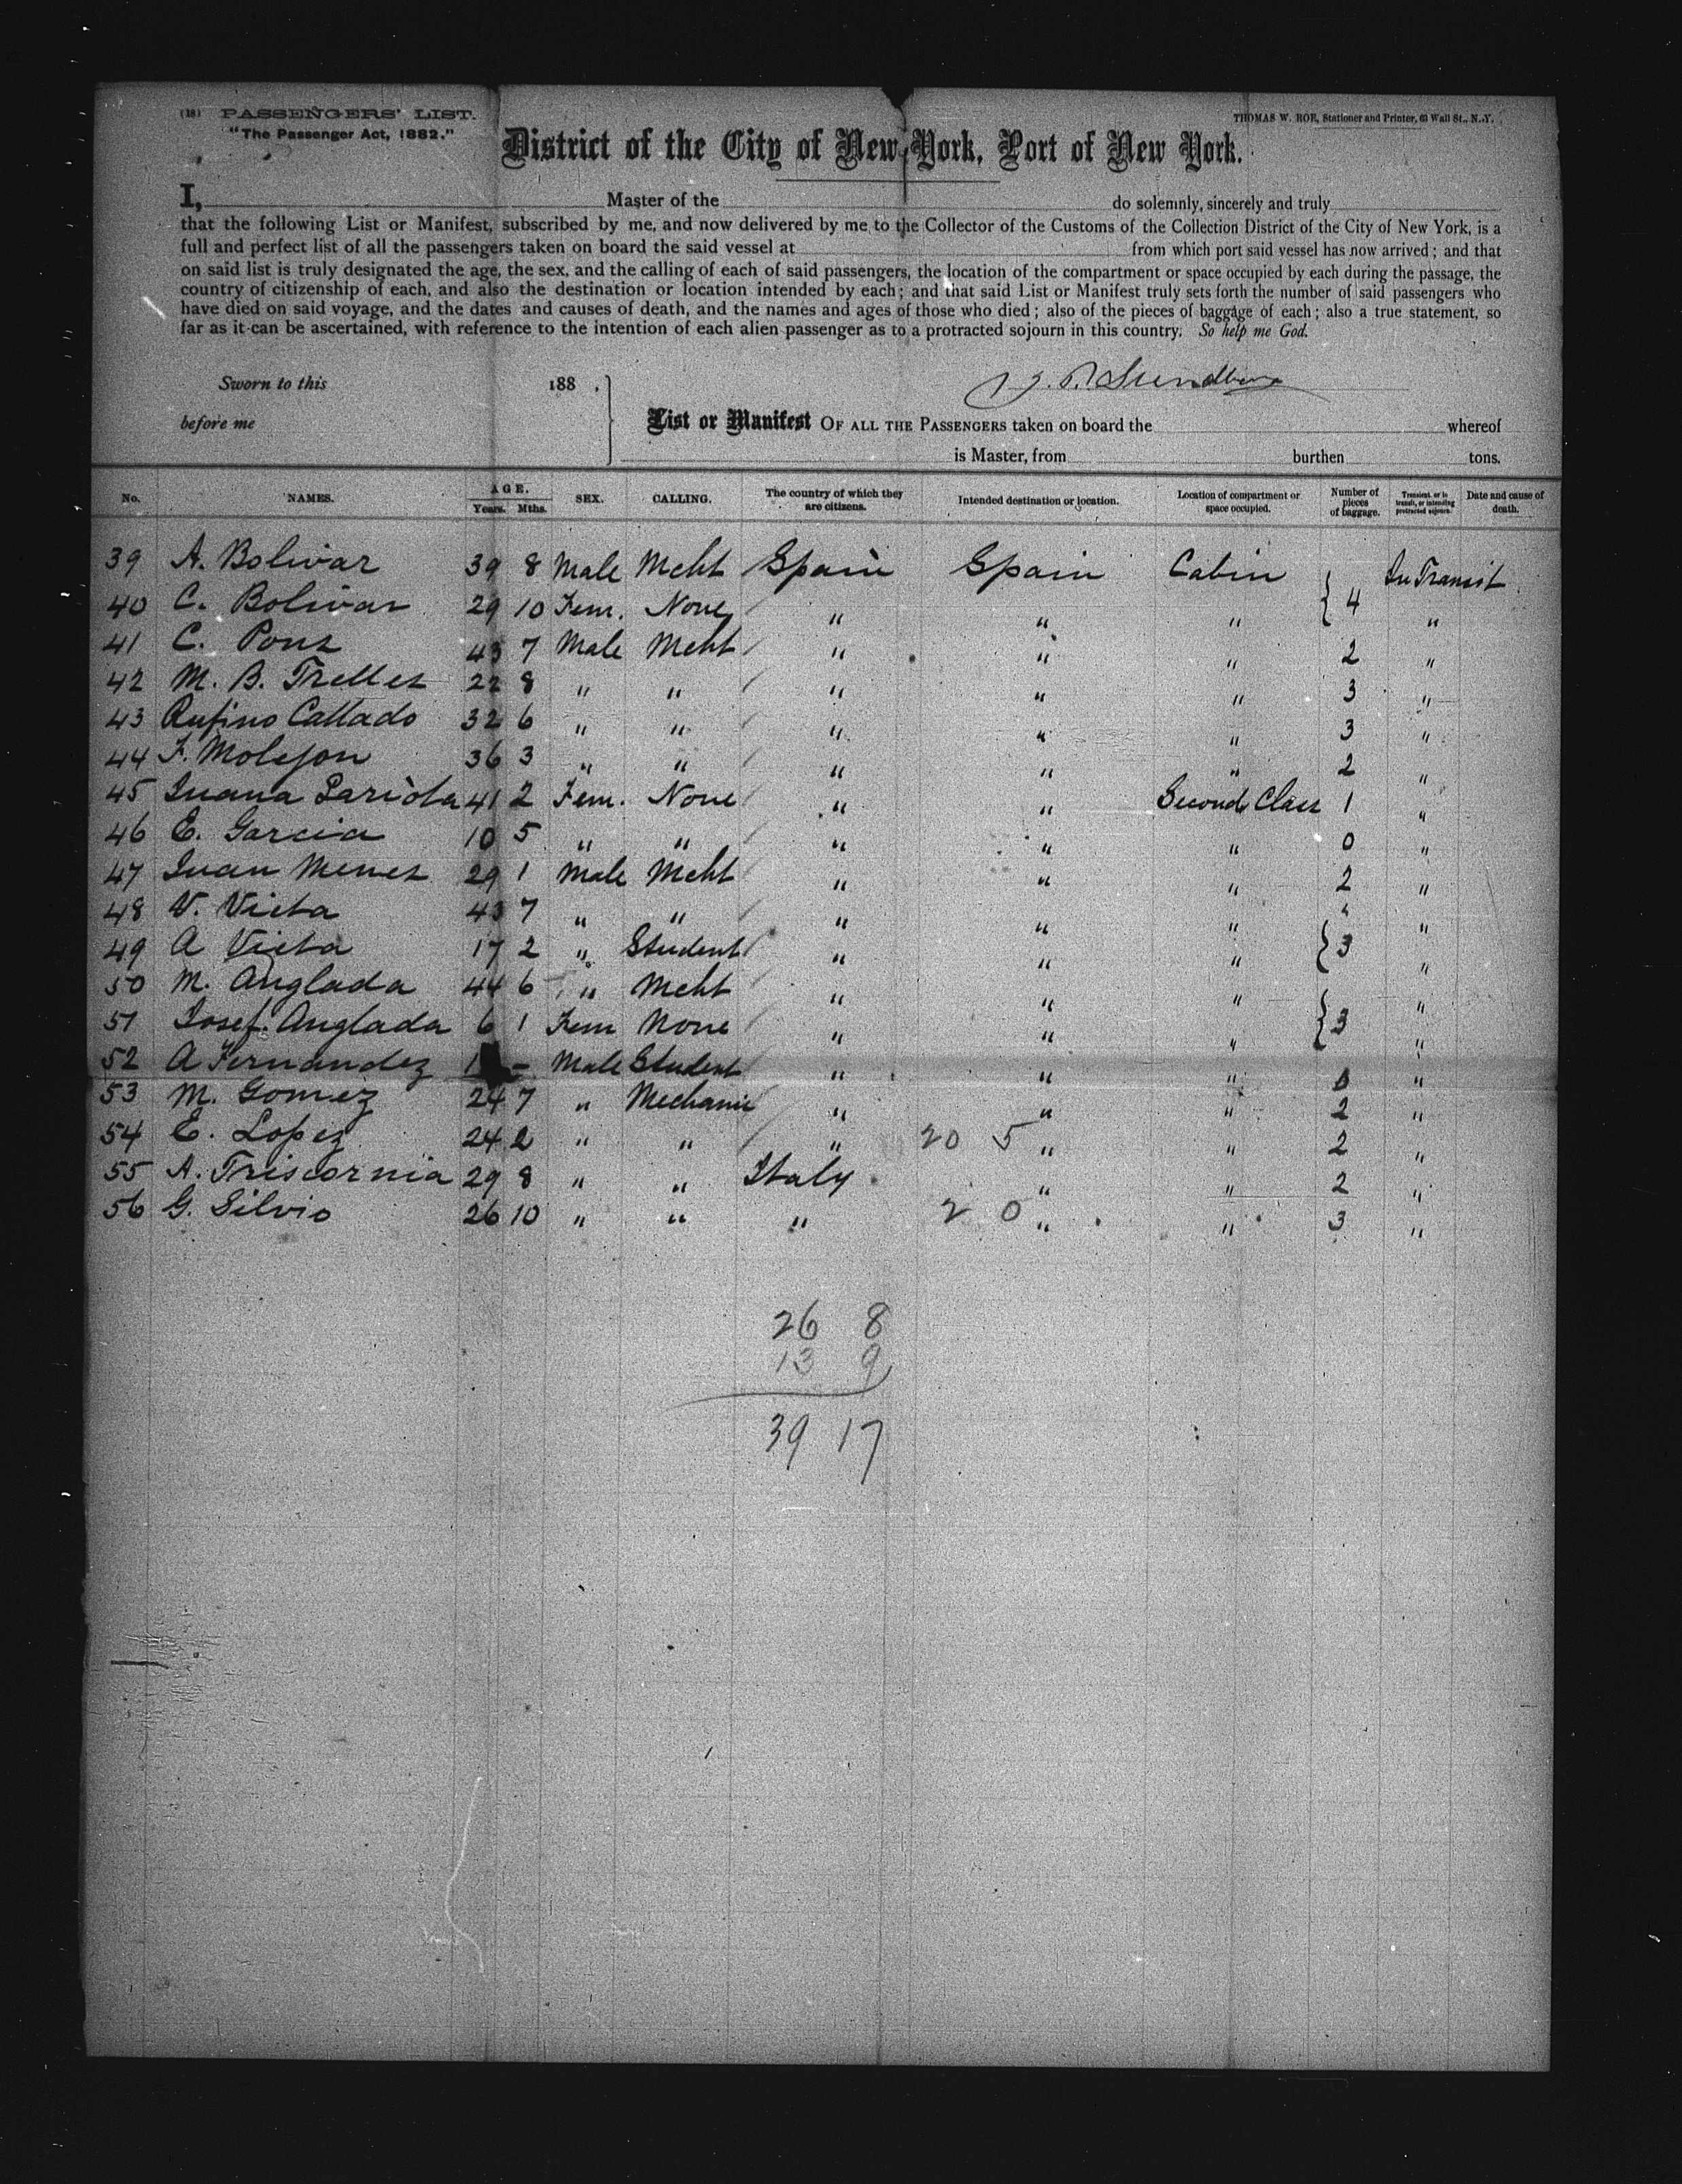 (18) PASSENGERS' LIST.
"The Passenger Act, 1882."
THOMAS W. ROE, Stationer and Printer, 63 Wall St., N.Y.
District of the City of New York, Port of New York.
I, Master of the do solemnly, sincerely and truly
that the following List or Manifest, subscribed by me, and now delivered by me to the Collector of the Customs of the Collection District of the City of New York, is a
full and perfect list of all the passengers taken on board the said vessel at from which port said vessel has now arrived; and that
on said list is truly designated the age, the sex, and the calling of each of said passengers, the location of the compartment or space occupied by each during the passage, the
country of citizenship of each, and also the destination or location intended by each; and that said List or Manifest truly sets forth the number of said passengers who
have died on said voyage, and the dates and causes of death, and the names and ages of those who died; also of the pieces of baggage of each; also a true statement, so
far as it can be ascertained, with reference to the intention of each alien passenger as to a protracted sojourn in this country. So help me God.
Sworn to this 188 .
before me
List or Manifest OF ALL THE PASSENGERS taken on board the whereof
is Master, from burthen tons.
No. NAMES. AGE. Years. Mths. SEX. CALLING. The country of which they are citizens. Intended destination or location. Location of compartment or space occupied. Number of pieces of baggage. Transient, or in transit, or intending protracted sojourn. Date and cause of death.
39 A. Bolivar 39 8 Male Mcht Spain Spain Cabin In Transit
40 C. Bolivar 29 10 Fem. None " " " 4 "
41 C. Pons 43 7 Male Mcht " " " 2 "
42 M. B. Trelles 22 8 " " " " " 3 "
43 Rufino Callado 32 6 " " " " " 3 "
44 F. Molejon 36 3 " " " " " 2 "
45 Juana 41 2 Fem. None " " Second Class 1 "
46 E. Garcia 10 5 " " " " " 0 "
47 Juan Menes 29 1 Male Mcht " " " 2 "
48 V. Vieta 43 7 " " " " " "
49 A Vieta 17 2 " Student " " " 3 "
50 M. Anglada 44 6 " Mcht " " " "
51 Josef. Anglada 6 1 Fem None " " " 3 "
52 A Fernandez 1 - Male Student " " " "
53 M. Gomez 24 7 " Mechanic " " " 2 "
54 E. Lopez 24 2 " " " 20 5 " " 2 "
55 A. Triscornia 29 8 " " Italy " " 2 "
56 G. Silvio 26 10 " " " 2 0 " " 3 "
26 8
13 9
39 17